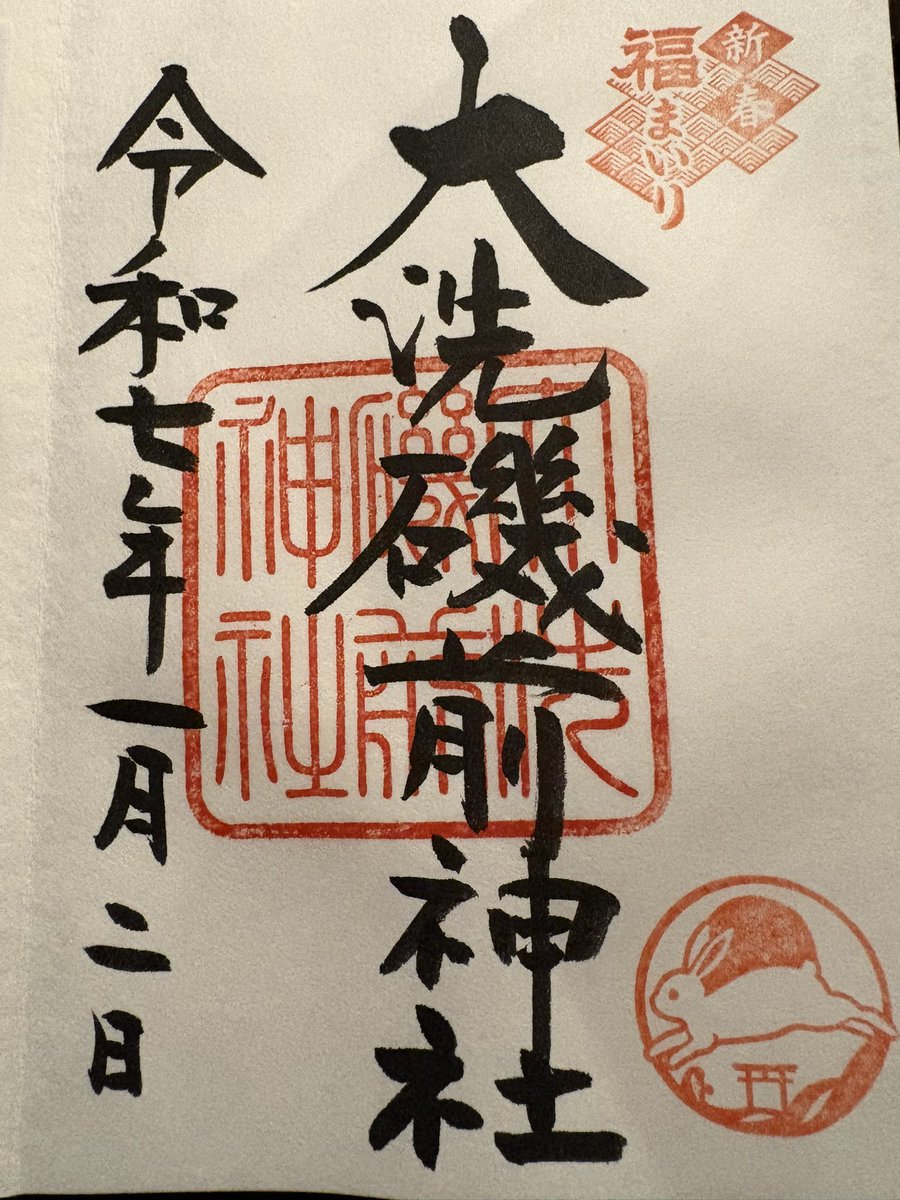 新春
福まいり
大洗磯前神社
大洗
磯前
神社
令和七年一月二日